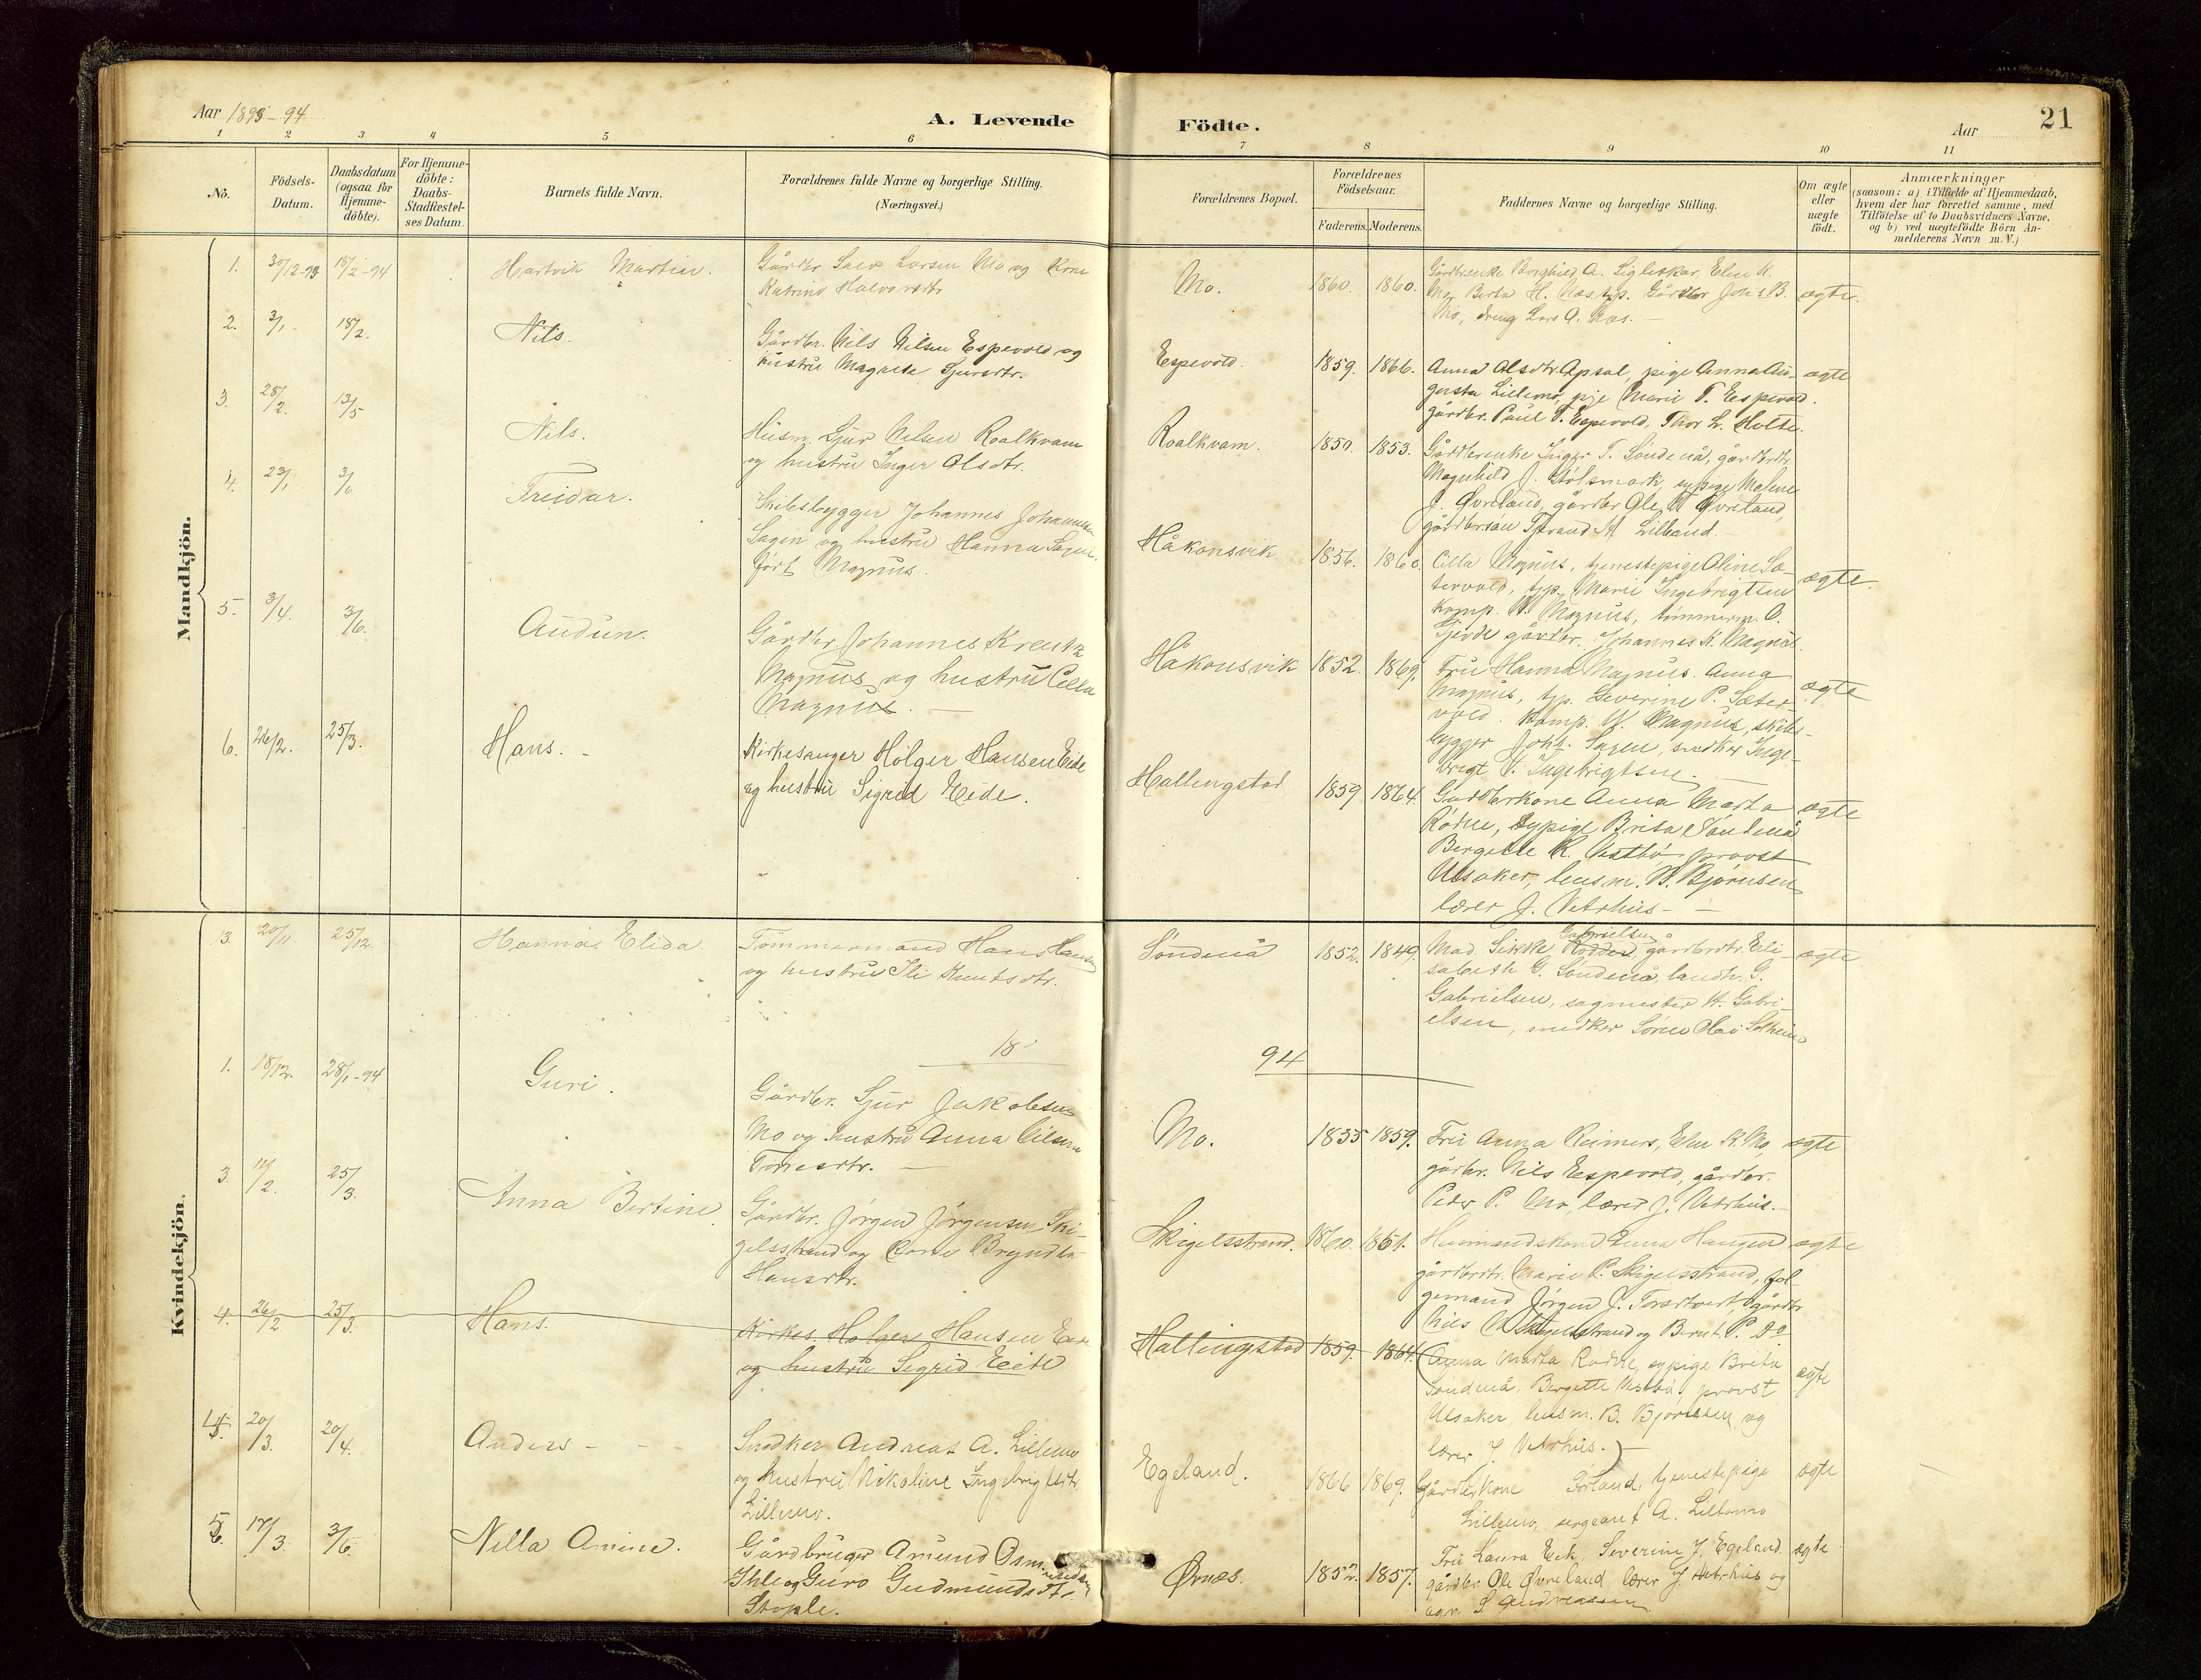 Aar 1893-94
A. Levende Födte.
Aar
21
1 2 3 4 5 6 7 8 9 10 11
No.
Födsels-Datum.
Daabsdatum (ogsaa for Hjemme-döbte).
For Hjemme-döbte: Daabs-Stadfæstel-ses Datum.
Barnets fulde Navn.
Forældrenes fulde Navne og borgerlige Stilling.
(Næringsvei.)
Forældrenes Bopæl.
Forældrenes Födselsaar.
Faderens. Moderens.
Faddernes Navne og borgerlige Stilling.
Om ægte eller uægte födt.
Anmærkninger
(saasom: a) i Tilfælde af Hjemmedaab,
hvem der har forrettet samme, med
Tilföielse af to Daabsvidners Navne,
og b) ved uægtefödte Börn An-
melderens Navn m. V.)
Mandkjön.
1. 30/12-93 18/2-94 Hartvik Martin.
Gårdbr. Larsen Mo og Kone
Katrine Halvorsdtr.
Mo. 1860. 1860.
Borghild A. Sigleskar, Elen K.
Mo, Berta H. Næs, Gårdbr
Mo, dreng Lars A. Næs.
ægte.
2. 3/1. 18/2. Nils.
Gårdbr. Nils Nilsen Espevold og
hustru Magrete Sjursdtr.
Espevold. 1859. 1866.
Anna Olsdtr. Apsal, pige Anna Au-
gusta Lillemo, pige Marie T. Espevold.
gårdbr. Paul T. Espevold, Thor L. Holte.
ægte
3. 28/2. 13/5 Nils.
Husm. Sjur Nilsen Roalkvam
og hustru Inger Olsdtr.
Roalkvam. 1850. 1853.
Gårdbrenke Inger T. Söndenå, gårdbrdtr.
Magnhild J. Stölsmark, sypige Malene
J. Øvreland, gårdbr Ole T Øvreland,
gårdbrsön Tjerand A Lilland.
4. 23/1 3/6 Treidar.
Skibsbygger Johannes Johannesen
Sagen og hustru Hanna Sagen,
født Magnus.
Håkonsvik 1856. 1860.
Cilla Magnus, tjenestepige Oline Sæ-
tervold, typ. Marie Ingebrigtsen
Komp. W. Magnus, tömmerm. O.
Gjerde gårdbr. Johannes K. Magnus.
ægte.
5. 3/4. 3/6. Audun.
Gårdbr Johannes Kreutz
Magnus og hustru Cilla
Magnus.
Håkonsvik 1852. 1869.
Fru Hanna Magnus. Anna
Magnus, typ. Severine P. Sæter-
vold. Komp. W. Magnus, skibs-
bygger Joh. Sagen, snedker Inge-
brigt V. Ingebrigtsen.
ægte
6. 26/2. 25/3. Hans.
Kirkesanger Holger Hansen Eide
og hustru Sigrid Eide.
Hallingstad 1859 1864.
Gårdbrkone Anna Marta
Rödne, sypige Brita Söndenå
Bergette K. Vestbö, provst
Ulsaker, lensm. B. Björnsen
lærer J. Vetrhus
ægte
Kvindekjön.
13. 20/11 25/12. Hannas Elida
Tömmermand Hans Hansen
og hustru Ili Knutsdtr.
Söndenå 1852. 1849.
Mad. Sikke Gabrielsen, gårdbrdtr. Eli-
sabeth G. Söndenå, landh. G.
Gabrielsen, sagmester H. Gabri-
elsen, snedker Sören Olai Solheim
ægte
18 94
1. 18/12. 28/1-94 Guri.
Gårdbr. Sjur Jakobsen
Mo og hustru Anna Cilsine
Torresdtr.
Mo. 1855 1859.
Fru Anna Reimers, Elen K. Mo,
gårbr. Nils Espevold, gårdbr.
Peder P. Mo, lærer J. Vetrhus.
ægte
3. 11/2. 25/3. Anna Bertine.
Gårdbr. Jörgen Jörgensen Ski-
gelsstrand og Kone Bryndla
Hansdtr.
Skigelsstrand. 1860. 1851.
Husmandskone Anna Haugen
gårdbrdtr. Marie P. Skigelsstrand, fol-
gemand Jörgen J. Torsetvest, gårdbr
Nils Skigelsstrand og Bernt P. Do
ægte
4. 26/2 25/3. Hans.
Kirkes. Holger Hansen Eide
og hustru Sigrid Eide
Hallingstad 1859. 1864.
(Anna Marta Rødne, sypige Brita
Söndenå, Bergette Vestbö, provst
Ulsaker, lensm. B. Björnsen og
lærer J. Vetrhus.)
ægte
4. 20/3. 20/4. Anders
Snedker Andreas A. Lillemo
og hustru Nikoline Ingebrigtsdtr.
Lillemo.
Egeland. 1866 1869.
Gårdbrkone Förland, tjenestepige
Lillemo, sergeant A. Lillemo
ægte
5. 17/3. 3/6. Nilla Amine.
Gårdbruger Amund Osmundsen
Ihle og Guro Gudmundsdtr.
Stople.
Ørnæs. 1852. 1857.
Fru Laura Eik, Severine J. Egeland
gårdbr. Ole Øvreland, lærer J Vetrhus og
agr. S Andreassen
ægte